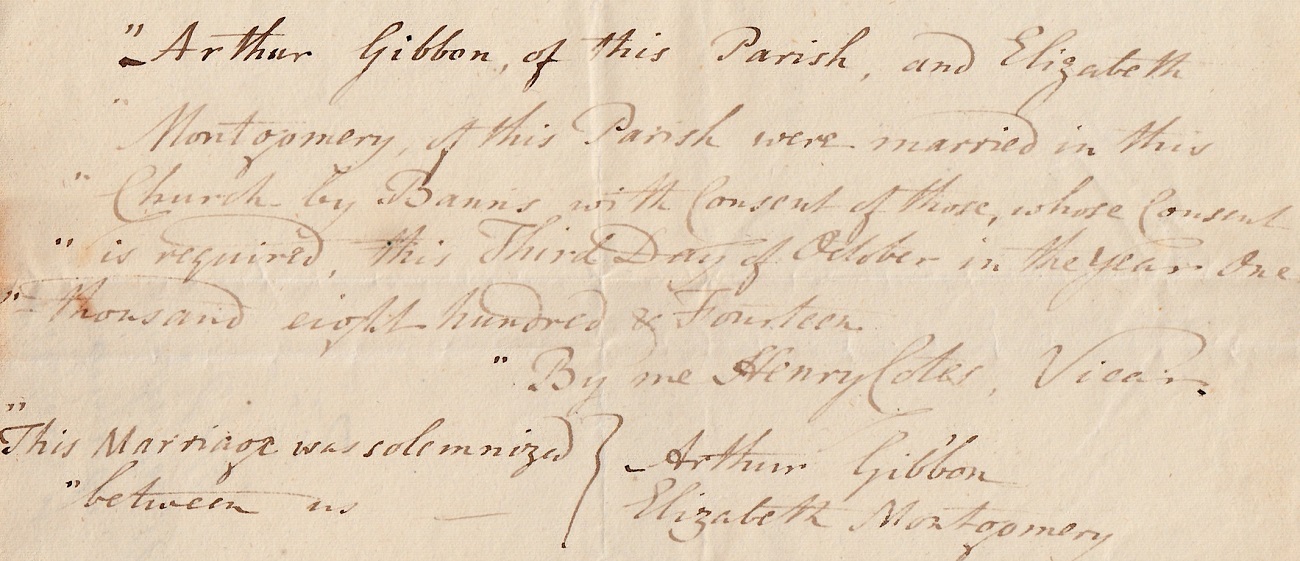 " Arthur Gibbon, of this Parish, and Elizabeth
" Montgomery, of this Parish were married in this
" Church by Banns with Consent of those, whose Consent
" is required, this Third Day of October in the Year One
" thousand eight hundred & Fourteen
" By me Henry Cotes, Vicar.
"
This Marriage was solemnized } Arthur Gibbon
" between us — Elizabeth Montgomery